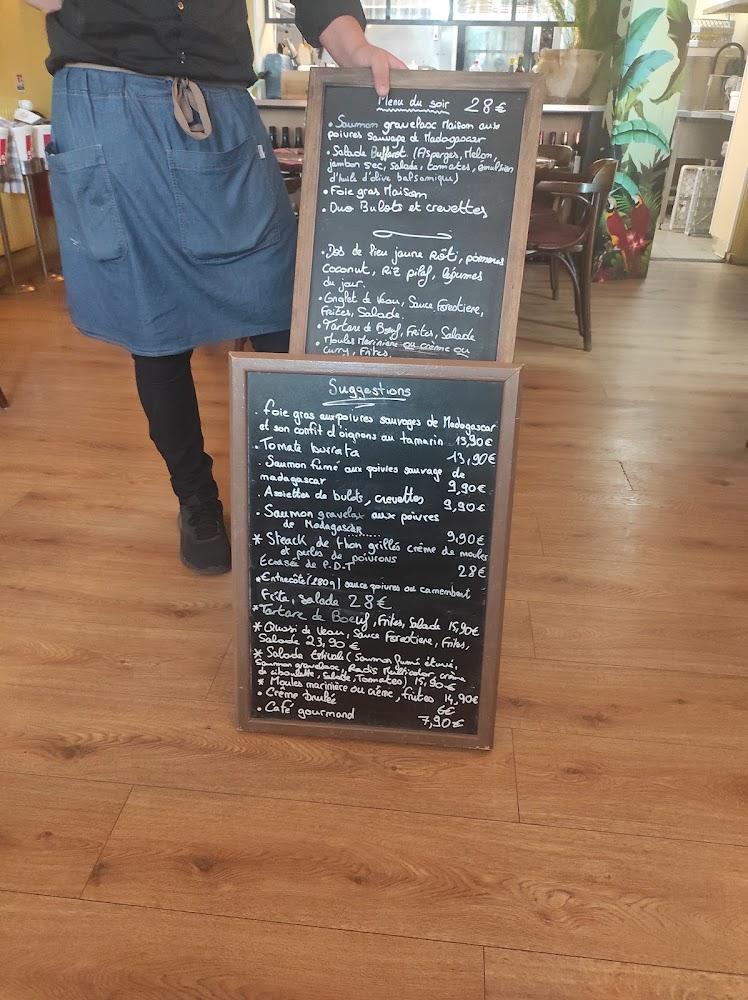 Menu du soir 28€
• Saumon gravelax Maison aux
poivres sauvage de Madagascar
• Salade Buffarot (Asperges, Melon,
jambon sec, Salade, tomates, émulsion
d'huile d'olive balsamique)
• Foie gras Maison
• Duo Bulots et crevettes
• Dos de lieu jaune Rôti, pommes
Coconut, Riz pilaf, légumes
du jour.
• Onglet de Veau, Sauce Forestiere,
Frites, Salade.
• Tartare de Bœuf, Frites, Salade
• Moules Marinière ou crème ou
curry, Frites
Suggestions
. Foie gras aux poivres sauvages de Madagascar
et son confit d'oignons au tamarin 13,90€
. Tomate burrata 13,90€
. Saumon fumé aux poivres sauvage de
madagascar 9,90€
. Assiettes de bulots, crevettes 9,90€
. Saumon gravelax aux poivres
de Madagascar 9,90€
* Steack de thon grillés crème de moules
et perles de poivrons
Ecrasée de P.D.T 28€
* Entrecôte (280g) sauce poivres ou camembert
Frite, salade 28€
* Tartare de Boeuf, Frites, Salade 15,90€
* Quasi de Veau, Sauce Forestiere, Frites,
Salade 23,90€
* Salade Estivale (Saumon fumé,
Saumon gravelaxe, Radis Multicolor, crème
de ciboulette, Salade, Tomates) 15,90€
* Moules marinière ou crème, frites 14,90€
. Crème brulée 6€
. Café gourmand 7,90€